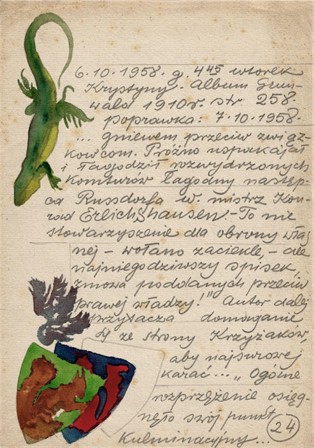 6.10.1958. g. 445 wtorek
Krystyny. Album Grun-
wald 1910 r. str. 258.
poprawka: 7.10.1958.
... gniewem przeciw związ-
kowcom. Próżno uspokajał
i łagodził rozwydrzonych
komturów łagodny następ-
ca Russdorfa w. mistrz Kon-
rad Erlichshausen! - To nie
stowarzyszenie dla obrony włas
nej - wołano zaciekle, - ale
najniegodziwszy spisek,
zmowa poddanych przeciw
prawej władzy!" Autor dalej
przytacza domaganie
się ze strony Krzyżaków,
aby najsurowej
karać... „Ogólne
rozprzężenie osięg-
nęło swój punkt
kulminacyjny...
24